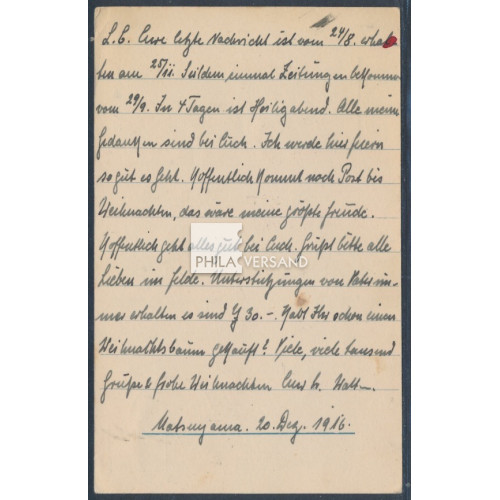 L. E. Eure letzte Nachricht ist vom 24/8. erhal
ten am 25/11. Seitdem einmal Zeitungen bekommen
vom 29/9. In 4 Tagen ist Heiligabend. Alle meine
Gedanken sind bei Euch. Ich werde hier feiern
so gut es geht. Hoffentlich kommt noch Post bis
Weihnachten, das wäre meine größte Freude.
Hoffentlich geht alles gut bei Euch. Grüßt bitte alle
Lieben im Felde. Unterstützungen von Vater im-
mer erhalten es sind Y 30.-. Habt Ihr schon einen
Weihnachtsbaum gekauft? Viele, viele tausend
Grüße & frohe Weihnachten Euer
Matsuyama. 20. Dez. 1916.
PHILA VERSAND